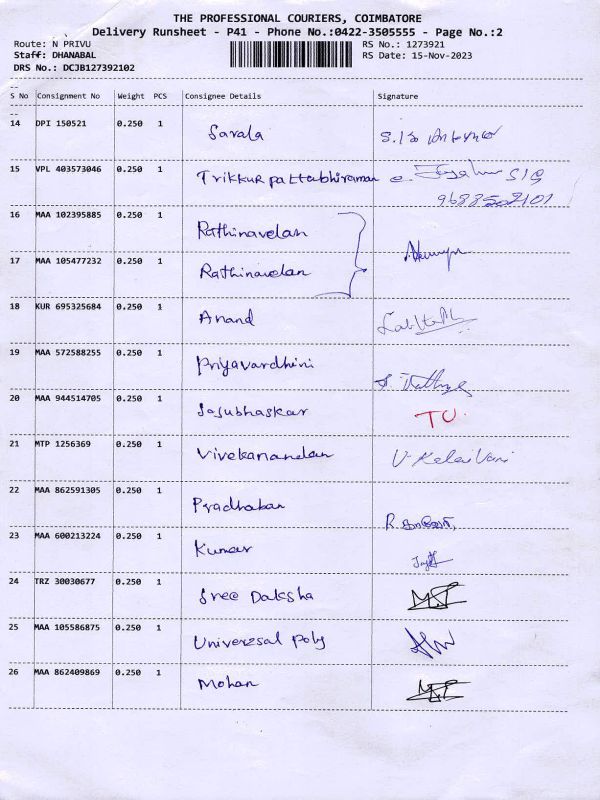 THE PROFESSIONAL COURIERS, COIMBATORE
Delivery Runsheet - P41 - Phone No.:0422-3505555 - Page No.:2
Route: N PRIVU RS No.: 1273921
Staff: DHANABAL RS Date: 15-Nov-2023
DRS No.: DCJB127392102
--
S No Consignment No Weight PCS Consignee Details Signature
--
14 DPI 150521 0.250 1 Sarala
15 VPL 403573046 0.250 1 Trikkurpattabhiraman
9688502101
16 MAA 102395885 0.250 1 Rathinavelan
17 MAA 105477232 0.250 1 Rathinavelan
18 KUR 695325684 0.250 1 Anand
19 MAA 572588255 0.250 1 Priyavardhini
20 MAA 944514705 0.250 1 Sasubhaskar TU.
21 MTP 1256369 0.250 1 Vivekanandan V. Kalaivani
22 MAA 862591305 0.250 1 Pradhaban
23 MAA 600213224 0.250 1 Kumar
24 TRZ 30030677 0.250 1 Sree Daksha
25 MAA 105586875 0.250 1 Universal Poly
26 MAA 862409869 0.250 1 Mohan